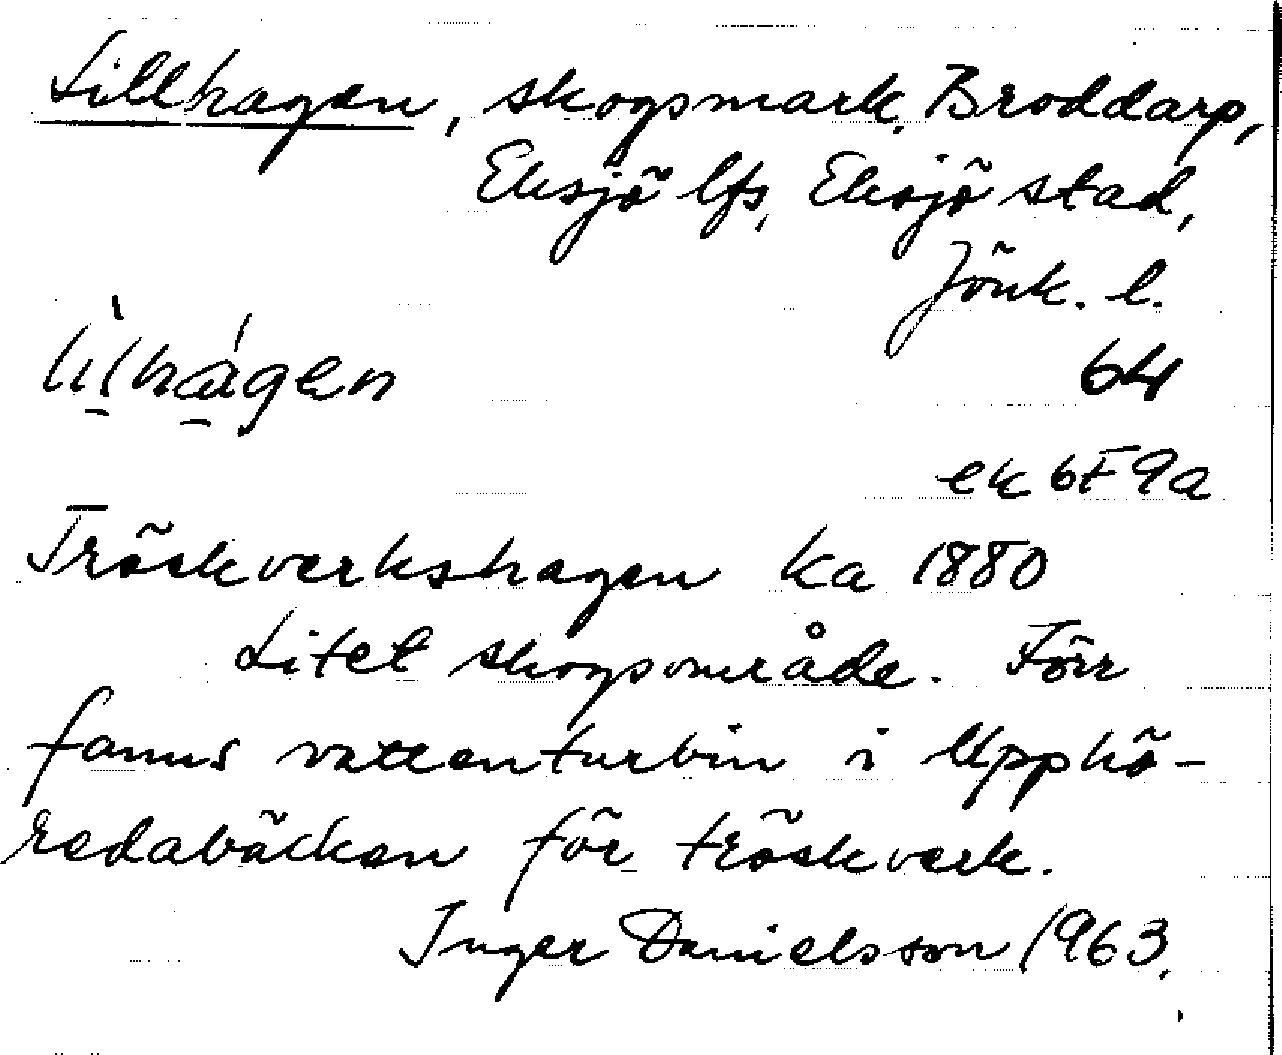 Lillhagen, skogsmark, Broddarp,
Eksjö lfs, Eksjö stad,
Jönk. l.
lìlhágen
64
ek 6F9a
Tröskverkshagen ka 1880
Litet skogsområde. Förr
fanns vattenturbin i Upphö-
redabäcken för tröskverk.
Inger Danielsson 1963.